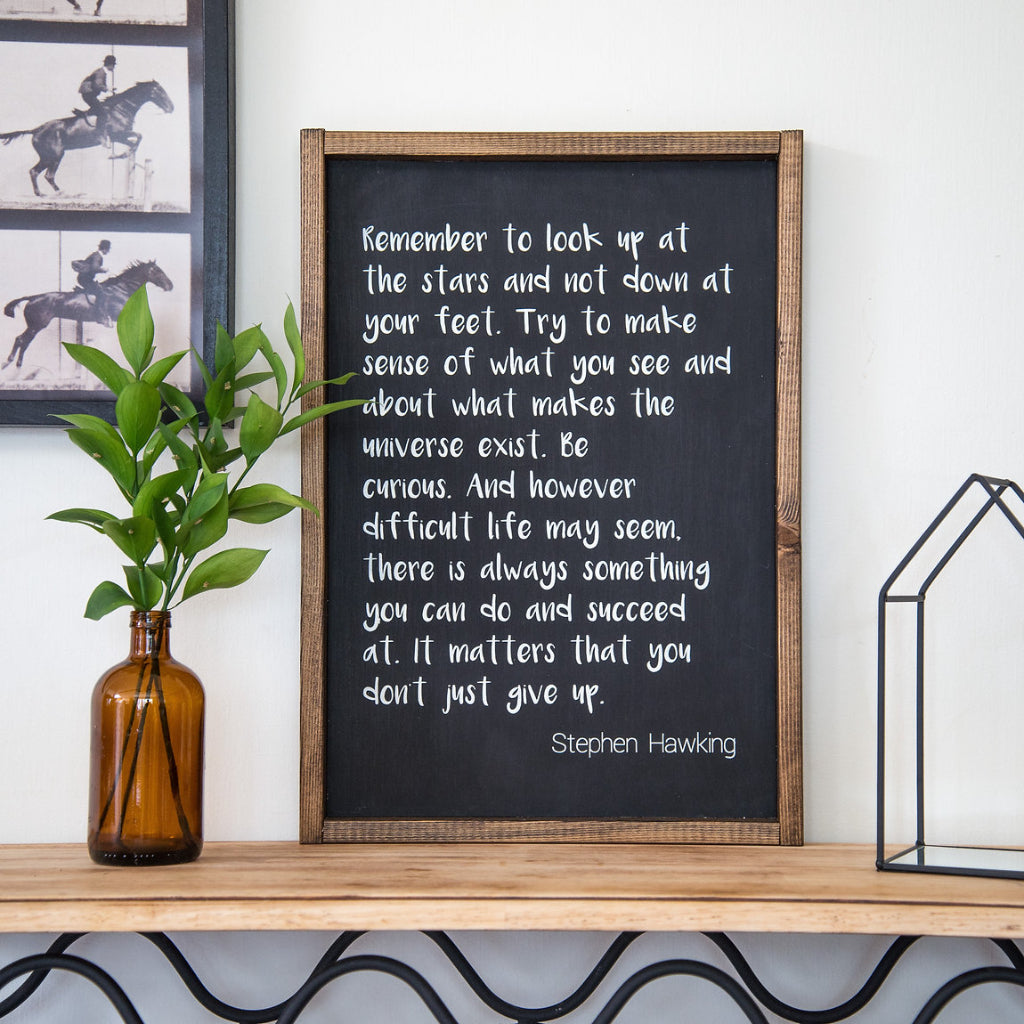 Remember to look up at
the stars and not down at
your feet. Try to make
sense of what you see and
about what makes the
universe exist. Be
curious. And however
difficult life may seem,
there is always something
you can do and succeed
at. It matters that you
don't just give up.
Stephen Hawking